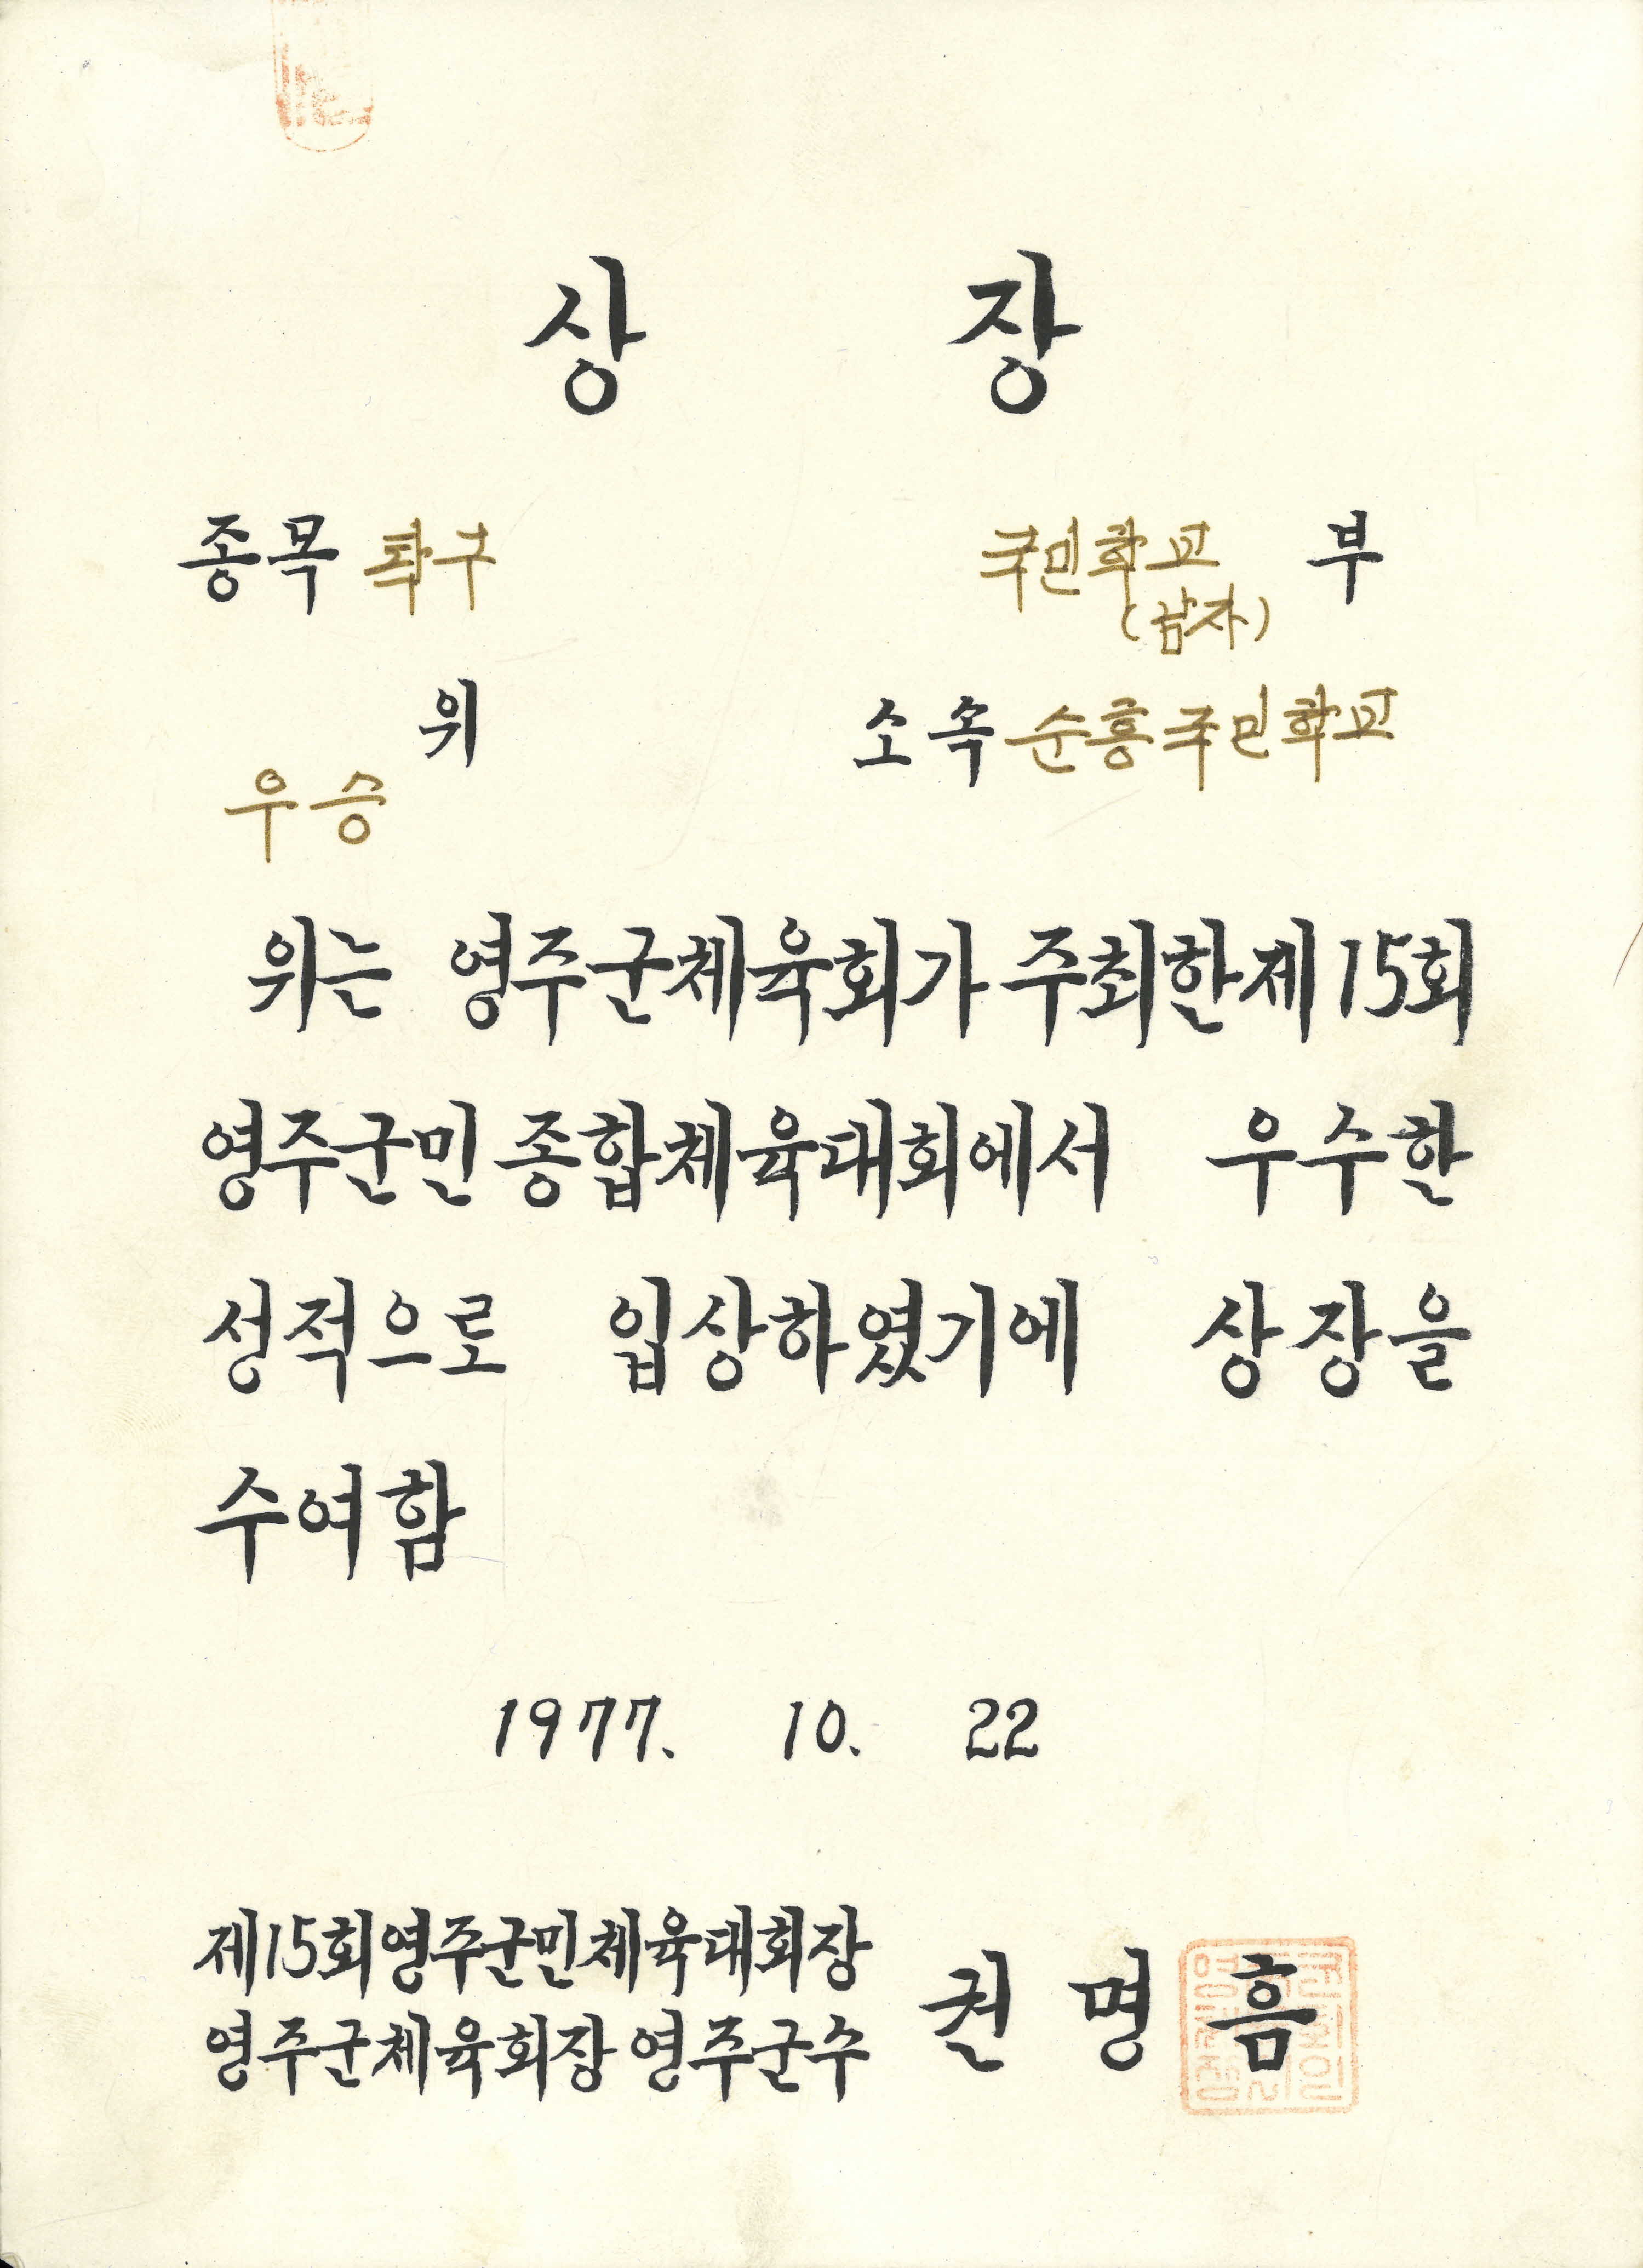 상 장
종목 탁구 국민학교 부
(남자)
위 소속 순흥국민학교
우승
위는 영주군체육회가 주최한 제15회
영주군민 종합체육대회에서 우수한
성적으로 입상하였기에 상장을
수여함
1977. 10. 22
제15회영주군민체육대회장
영주군체육회장 영주군수 권 명 흠